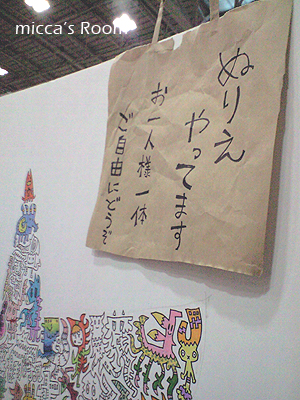 micca's Room
ぬりえ
やってます
お一人様一体
ご自由にどうぞ